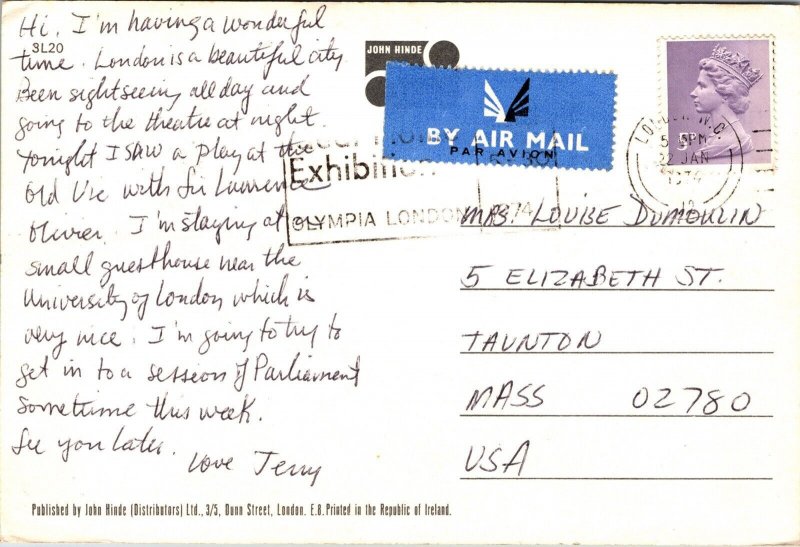 Hi. I'm having a wonderful
3L20
time. London is a beautiful city
Been sightseeing all day and
going to the theatre at night.
Tonight I saw a play at the
Old Vic with Sir Laurence
Olivier. I'm staying at a
small guesthouse near the
University of London which is
very nice. I'm going to try to
get in to a session of Parliament
sometime this week.
See you later.
Love Jerry
JOHN HINDE
BY AIR MAIL
PAR AVION
Exhibition
OLYMPIA LONDON
LONDON W.C.
5 PM
22 JAN
1974
MRS. LOUISE DUMOULIN
5 ELIZABETH ST.
TAUNTON
MASS 02780
USA
Published by John Hinde (Distributors) Ltd., 3/5, Dunn Street, London. E.8. Printed in the Republic of Ireland.